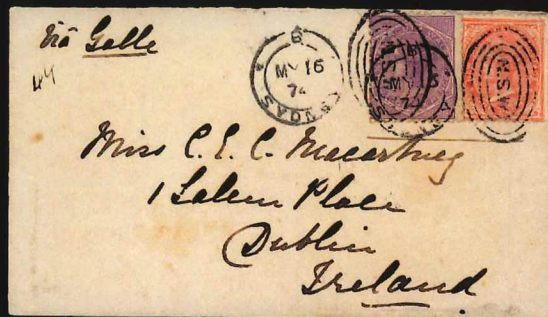 Via Galle
44
B
MY 16
74
SYDNEY
N.S.W
Miss C. E. C. Macartney
1 Salem Place
Dublin
Ireland